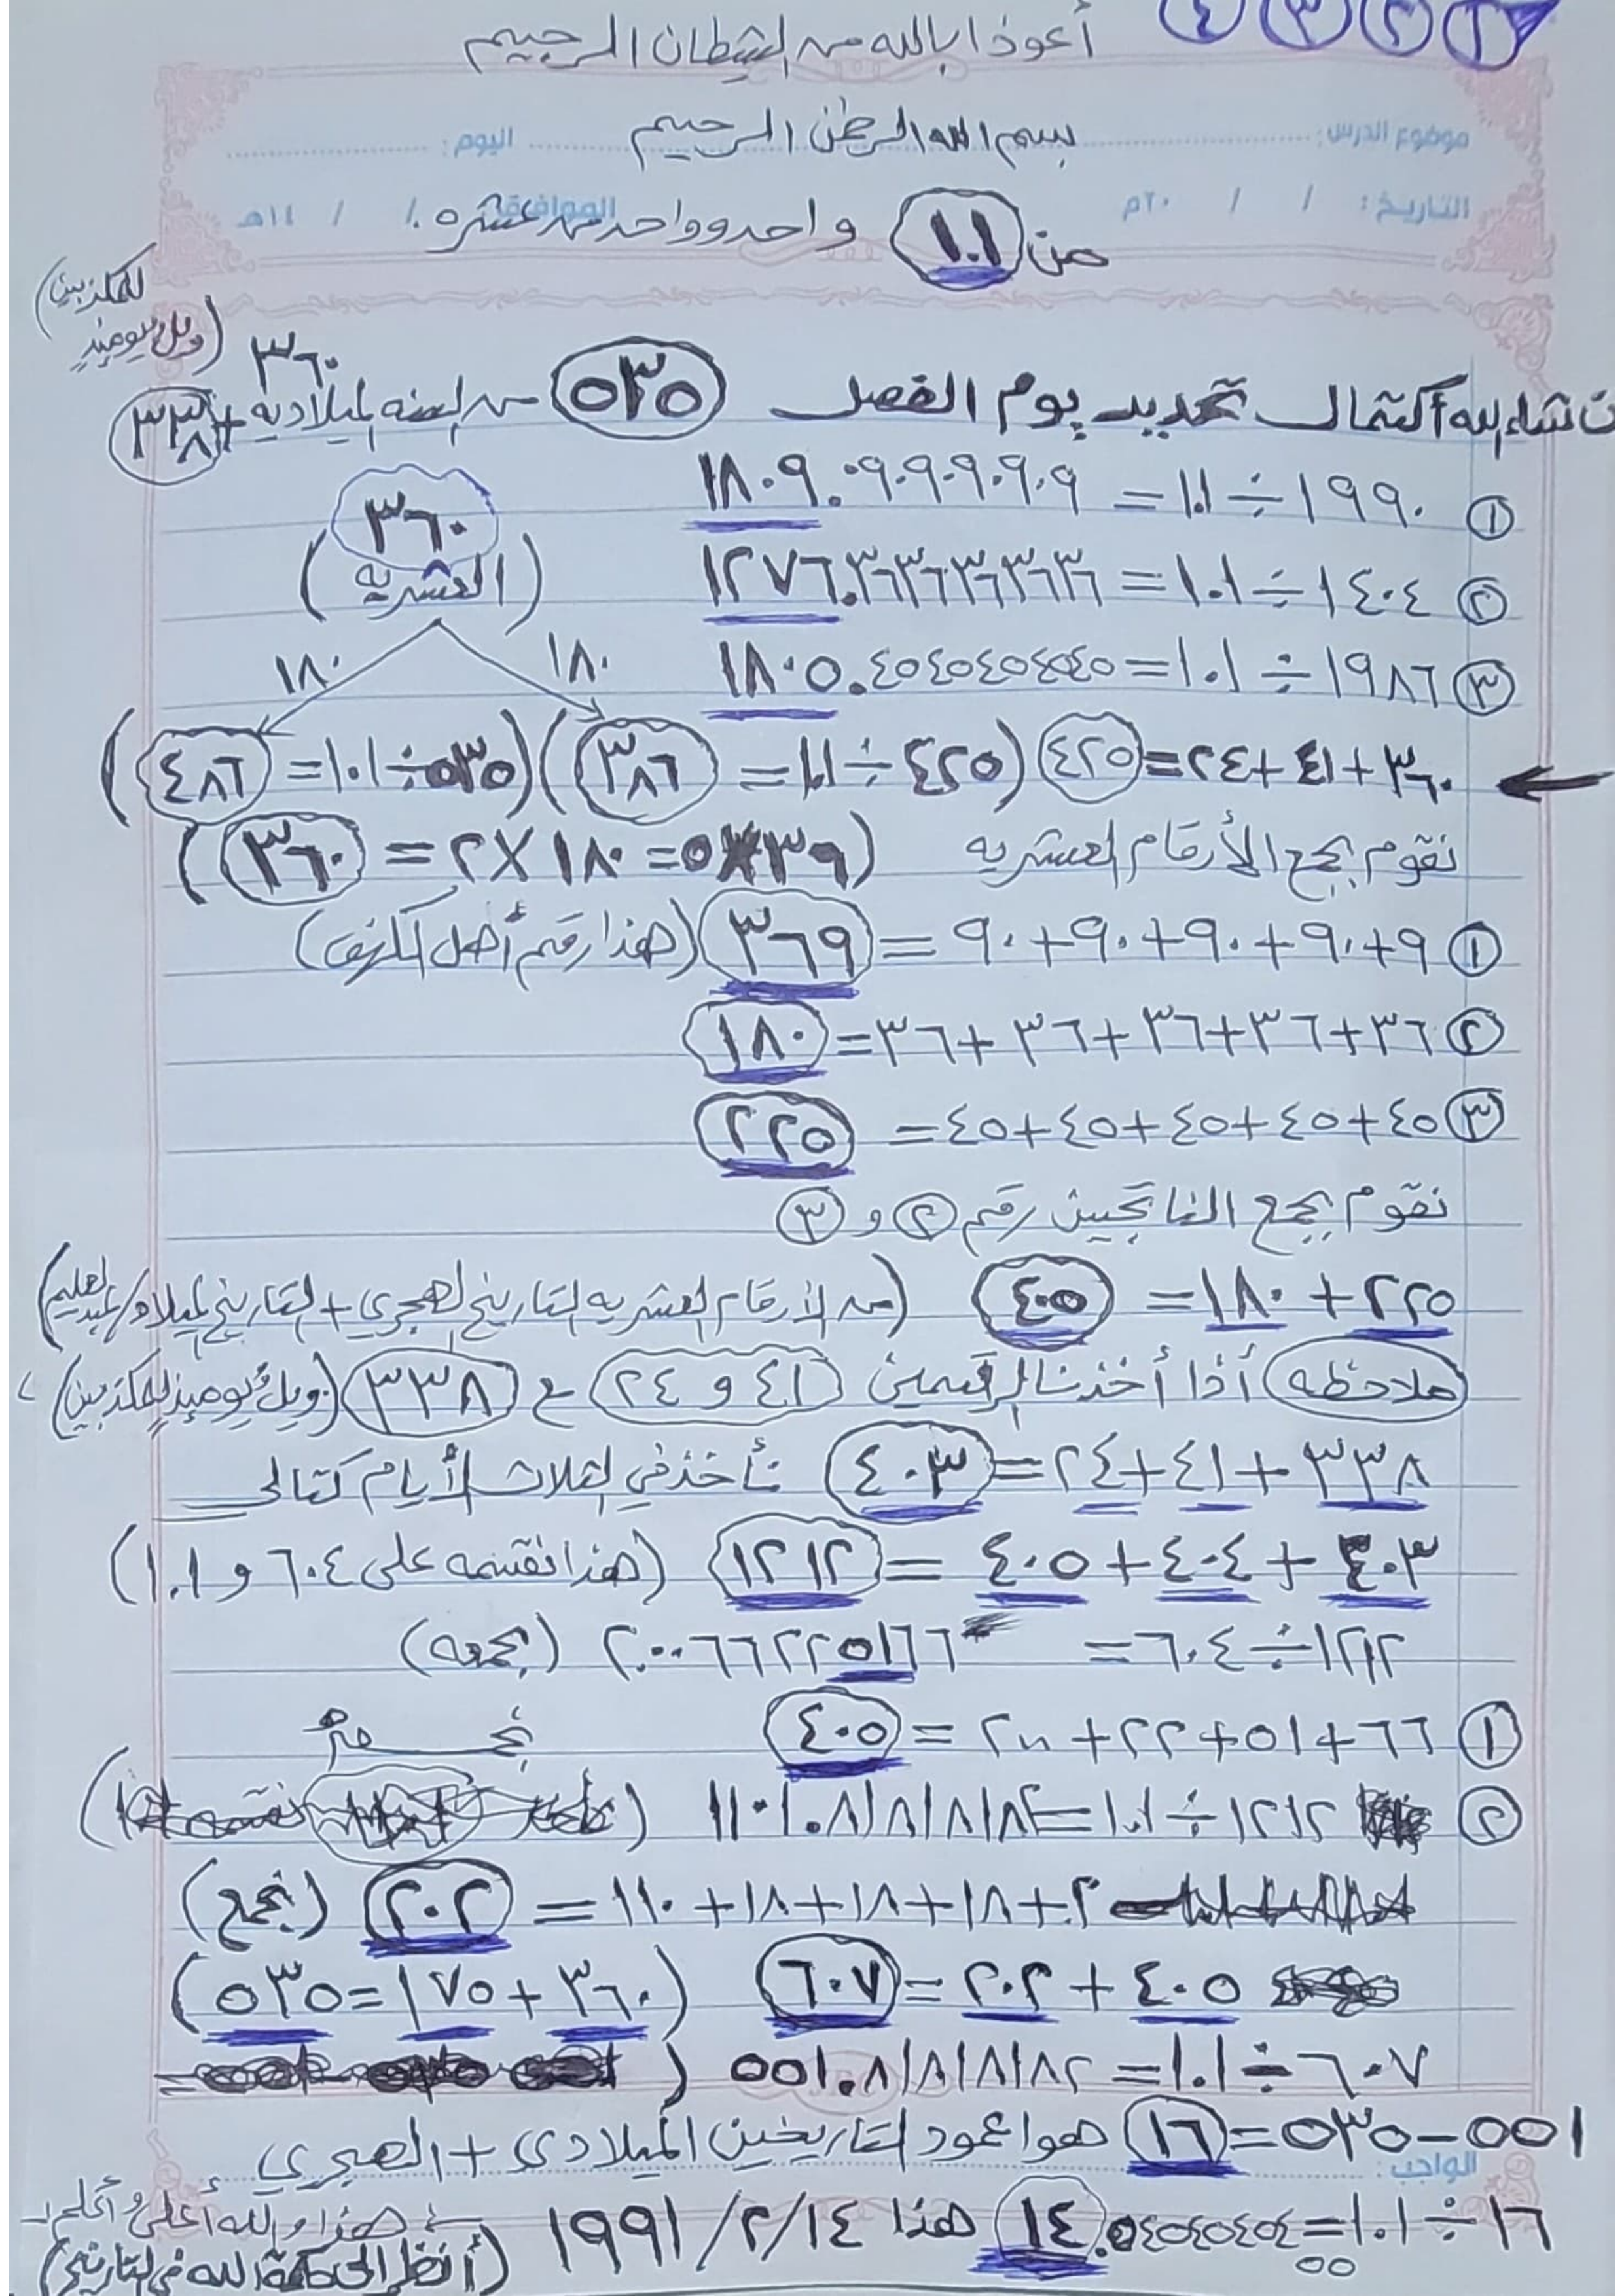 ١ ٢ ٣ ٤
أعوذ ابالله من الشيطان الرجيم
بسم الله الرحمن الرحيم
موضوع الدرس: اليوم:
التاريخ: / / ٢٠م الموافق: / / ١٤هـ
من ١.١ واحد وواحد من عشره
للمكذبين
(ويل يومئذٍ
٣٦٠
ن شاء الله أكتمال تحديد يوم الفصل ٥٣٥ من السنه الميلاديه + ٣٣٨
① ١٩٩٠ ÷ ١.١ = ١٨٠٩.٠٩٠٩٠٩٠٩٠٩
② ١٤٠٤ ÷ ١.١ = ١٢٧٦.٣٦٣٦٣٦٣٦٣٦
③ ١٩٨٦ ÷ ١.١ = ١٨٠٥.٤٥٤٥٤٥٤٥٤٥
٣٦٠
(العشريه)
١٨٠ ١٨٠
٣٦٠ + ٤١ + ٢٤ = ٤٢٥ (٤٢٥ ÷ ١.١ = ٣٨٦) (٥٣٥ ÷ ١.١ = ٤٨٦)
نقوم بجمع الأرقام العشريه (٣٦ × ٥ = ١٨٠ × ٢ = ٣٦٠)
① ٩ + ٩٠ + ٩٠ + ٩٠ + ٩٠ = ٣٦٩ (هذا رقم أهل الكهف)
② ٣٦ + ٣٦ + ٣٦ + ٣٦ + ٣٦ = ١٨٠
③ ٤٥ + ٤٥ + ٤٥ + ٤٥ + ٤٥ = ٢٢٥
نقوم بجمع الناتجين رقم ② و ③
٢٢٥ + ١٨٠ = ٤٠٥ (من الأرقام العشريه التاريخ الهجري + التاريخ الميلاد/عبدالعليم)
ملاحظه أذا أخذنا الرقمين ٤١ و ٢٤ ع ٣٣٨ (ويلٌ يومئذٍ للمكذبين)
٣٣٨ + ٤١ + ٢٤ = ٤٠٣ نأخذ في الثلاث الأيام كتالي
٤٠٣ + ٤٠٤ + ٤٠٥ = ١٢١٢ (هذا نقسمه على ٦٠٤ و ١.١)
١٢١٢ ÷ ٦٠٤ = ٢.٠٠٦٦٢٢٥١٦٦ (بجمعه)
① ٦٦ + ٥١ + ٢٢ + ٢٠٠ = ٤٠٥
② ١٢١٢ ÷ ١.١ = ١١٠١.٨١٨١٨١٨٢
٢ + ١٨ + ١٨ + ١٨ + ١١٠ = ٢٠٢ (نجمع)
٤٠٥ + ٢٠٢ = ٦٠٧ (٣٦٠ + ١٧٥ = ٥٣٥)
٦٠٧ ÷ ١.١ = ٥٥١.٨١٨١٨١٨٢
٥٥١ – ٥٣٥ = ١٦ هوا عمود التاريخين الميلادي + الهجري
الواجب:
١٦ ÷ ١.١ = ١٤.٥٤٥٤٥٤٥٤ هذا ١٤/٢/١٩٩١
هذا والله أعلى وأعلم
(أنظر إلى حكمة الله في التاريخ)